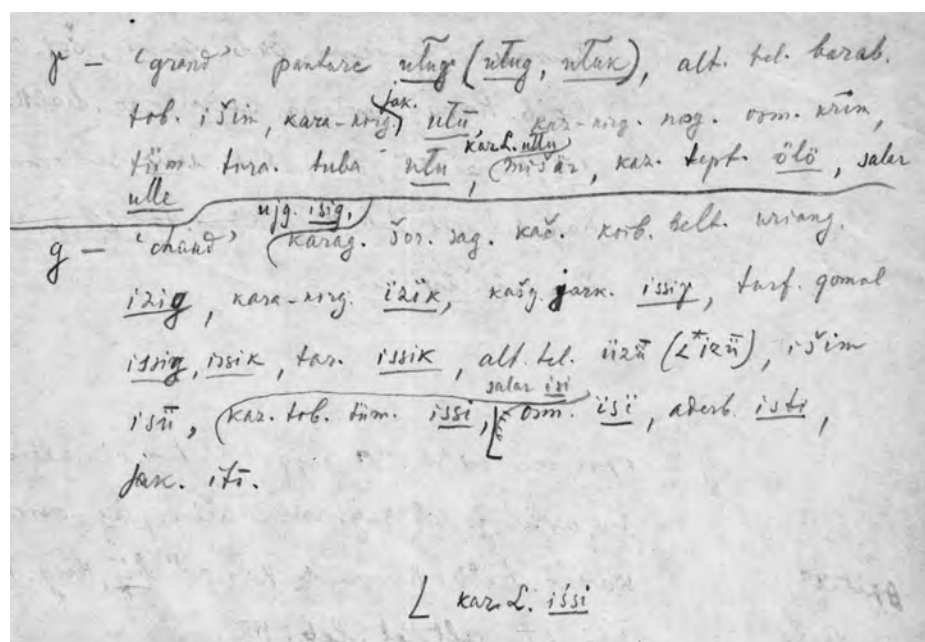 γ — ‘grand’ panturc uług (uług, ułuk), alt. tel. barab.
tob. išim, kara-kirg. jak. ułū, kaz-kirg. nog. osm. krim,
tüm. tura. tuba ułu, kar.Ł. ullu mišär, kaz. tept. ölö, salar
ulle
g — ‘chaud’ ujg. isig, karag. šor. sag. kač. koib. belt. uriang.
izig, kara-kirg. ïzïk, kašg. jark. issiγ, turf. qomul
issig, issik, tar. issik, alt. tel. üzǖ (<*izǖ), išim
isǖ, kaz. tob. tüm. issi, salar isi osm. ïsï, aderb. isti,
jak. iti.
kar. Ł. iśsi